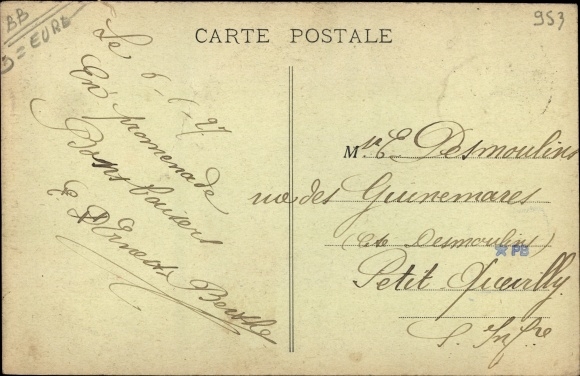 BB
5 = EURO
953
CARTE POSTALE
Le 6-6-27
En promenade
Bons baisers
E. D Ernest Berthe
Mme E Desmoulins
rue des Guinemares
(Cité Desmoulins)
PB
Petit Quevilly
S. Infre